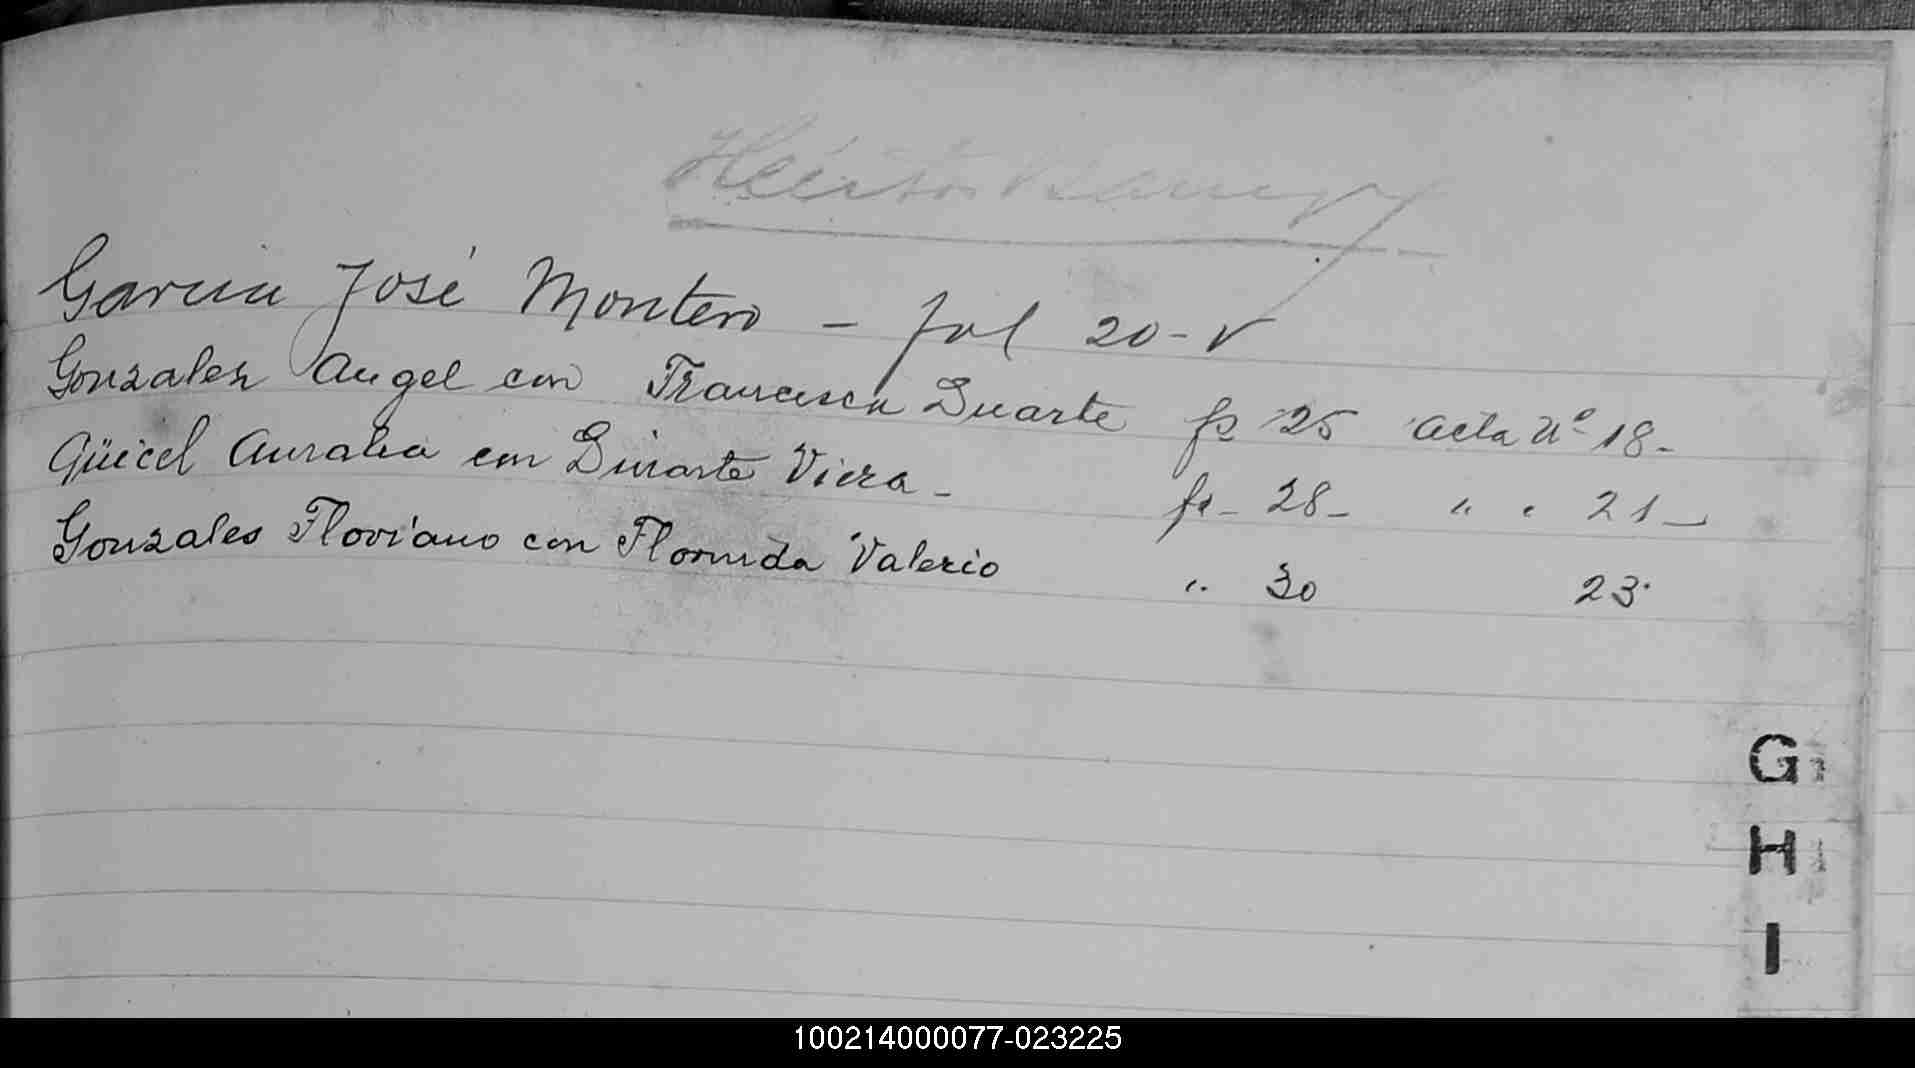 Garcia José Montero - fol 20-V
Gonzalez Angel con Francisca Duarte fs 25 acta Nº 18-
Güicel Auralia con Duarte Viera - fs- 28- " " 21-
Gonzales Floviano con Florinda Valerio " 30 23
G
H
I
100214000077-023225